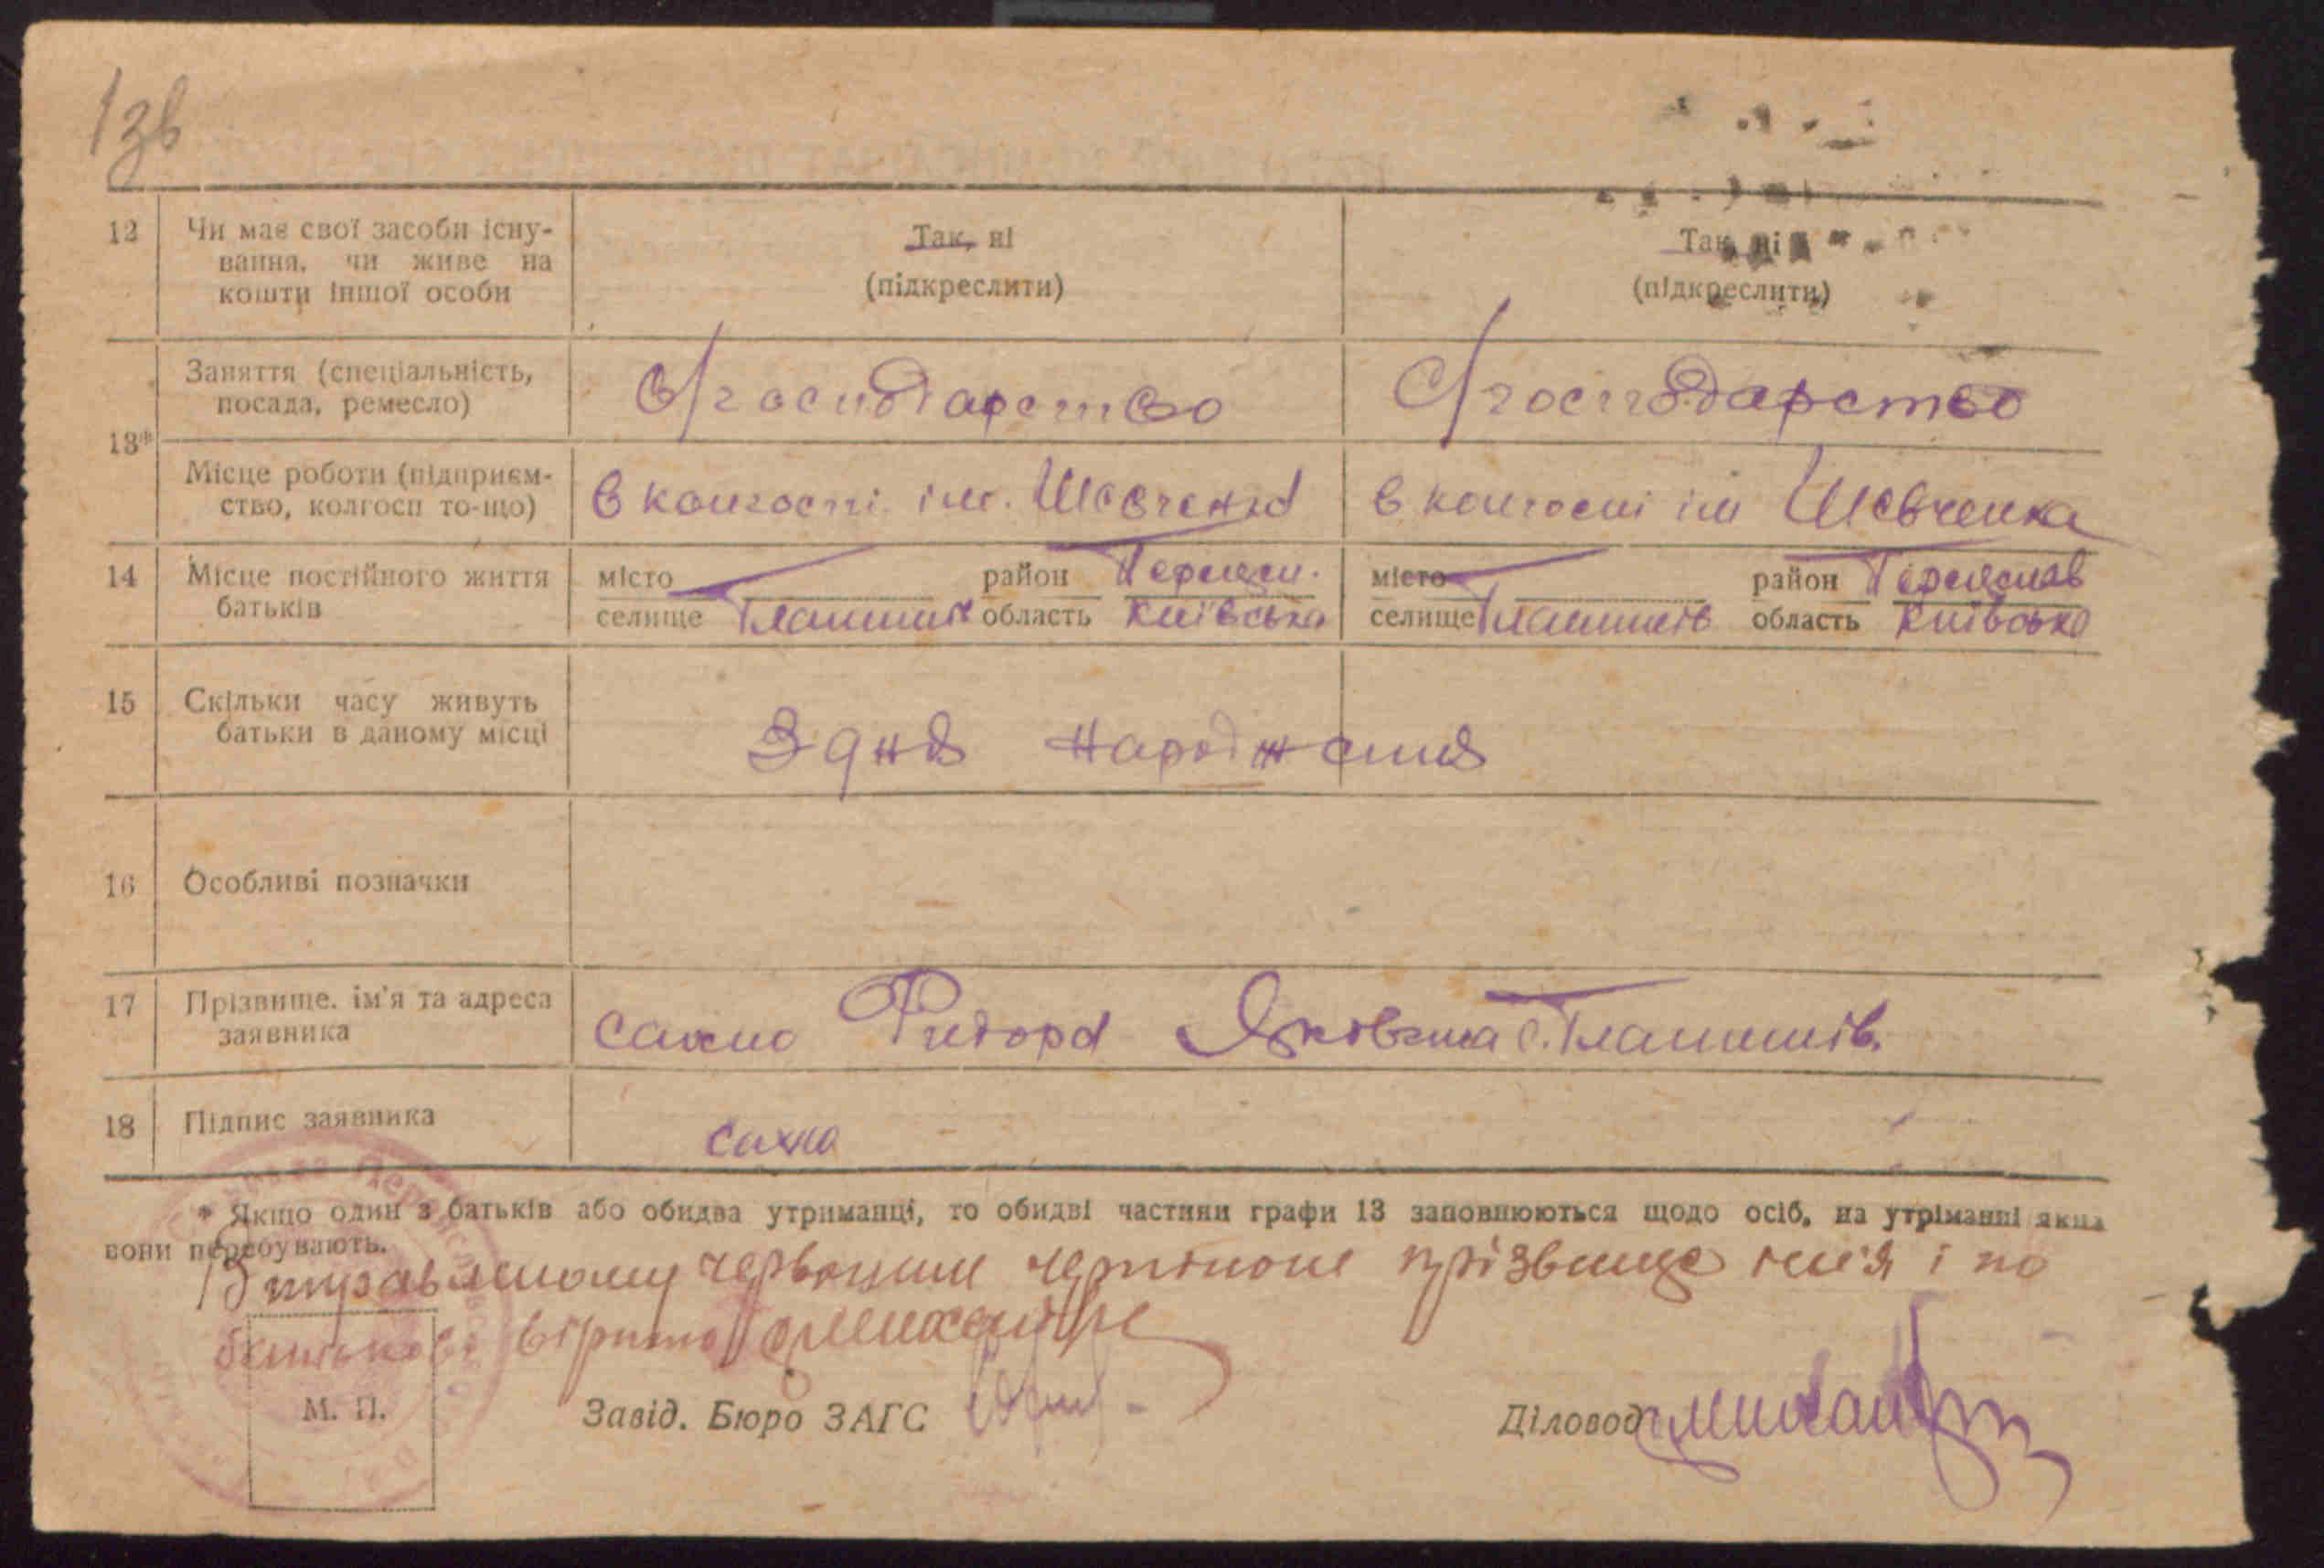 13в
12 Чи має свої засоби існу-
вання, чи живе на
кошти іншої особи
Так, ні
(підкреслити)
Так, ні
(підкреслити)
13*
Заняття (спеціальність,
посада, ремесло)
с/господарство
с/господарство
Місце роботи (підприєм-
ство, колгосп то-що)
в колгоспі ім. Шевченка
в колгоспі ім Шевченка
14 Місце постійного життя
батьків
місто район Переясл.
селище Гланишів область Київська
місто район Переяслав
селище Гланишів область Київська
15 Скільки часу живуть
батьки в даному місці
З дня народження
16 Особливі позначки
17 Прізвище, ім'я та адреса
заявника
Сахно Фидора Яковлича с. Гланишів.
18 Підпис заявника
Сахно
* Якщо один з батьків або обидва утриманці, то обидві частини графи 13 заповнюються щодо осіб, на утріманні яких
вони перебувають.
Виправленому червоним чернілом прізвище імья і по
батькові вірити
М. П.
Завід. Бюро ЗАГС
Діловод